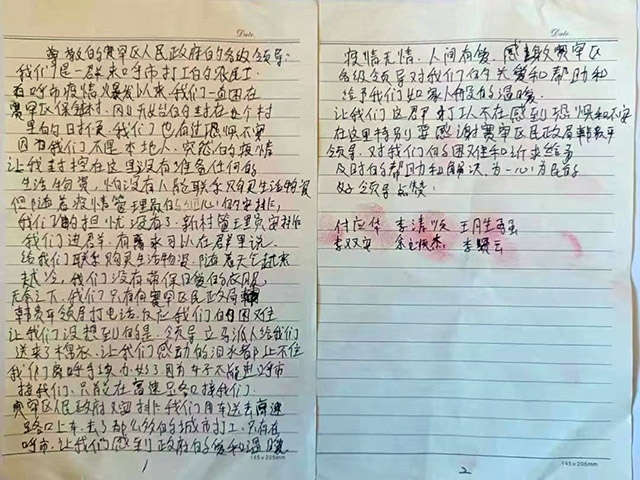 Date
尊敬的赛罕区人民政府的各级领导:
我们是一起来呼市打工的农民工.
在呼市疫情爆发以来,我们一直困在
赛罕区保全村.
里面的日子里.我们也有过恐慌不安
因为我们不是本地人.突然的疫情
让我封控在这里没有准备任何的
生活物资,怕没有人能联系购买生活物资
但随着疫情管理员的细心的安排,
我们的担忧没有了.新村管理员安排
我们进群.有需求可以在群里说
给我们联系购买生活物资.随着天气越来
越冷,我们没有带保日暖的衣服,
无奈之下.我们只有向赛罕区民政局
韩贵年领导打电话反应我们的困难
让我们没想到的是.领导立马派人给我们
送来了棉衣.让我们感动的泪水都止不住
我们离呼手续办好了因为车子不能进呼市
接我们.只能在高速路口接我们.
赛罕区人民政府又安排我们用车送去高速
路口上车.去了那么多的城市打工.只有在
呼市.让我们感到政府的爱和温暖.
1
145x205mm
Date
疫情无情.人间有爱.感谢赛罕区
各级领导对我们的关爱和帮助和
给予我们如家人般的温暖.
让我们这群打工人不在感到恐惧和不安
在这里特别要感谢赛罕区民政局韩贵年
领导.对我们的困难和诉求给予
及时的帮助和解决.为一心为民的
好领导点赞:
付应华 李清
李双安 李
2
145x205mm